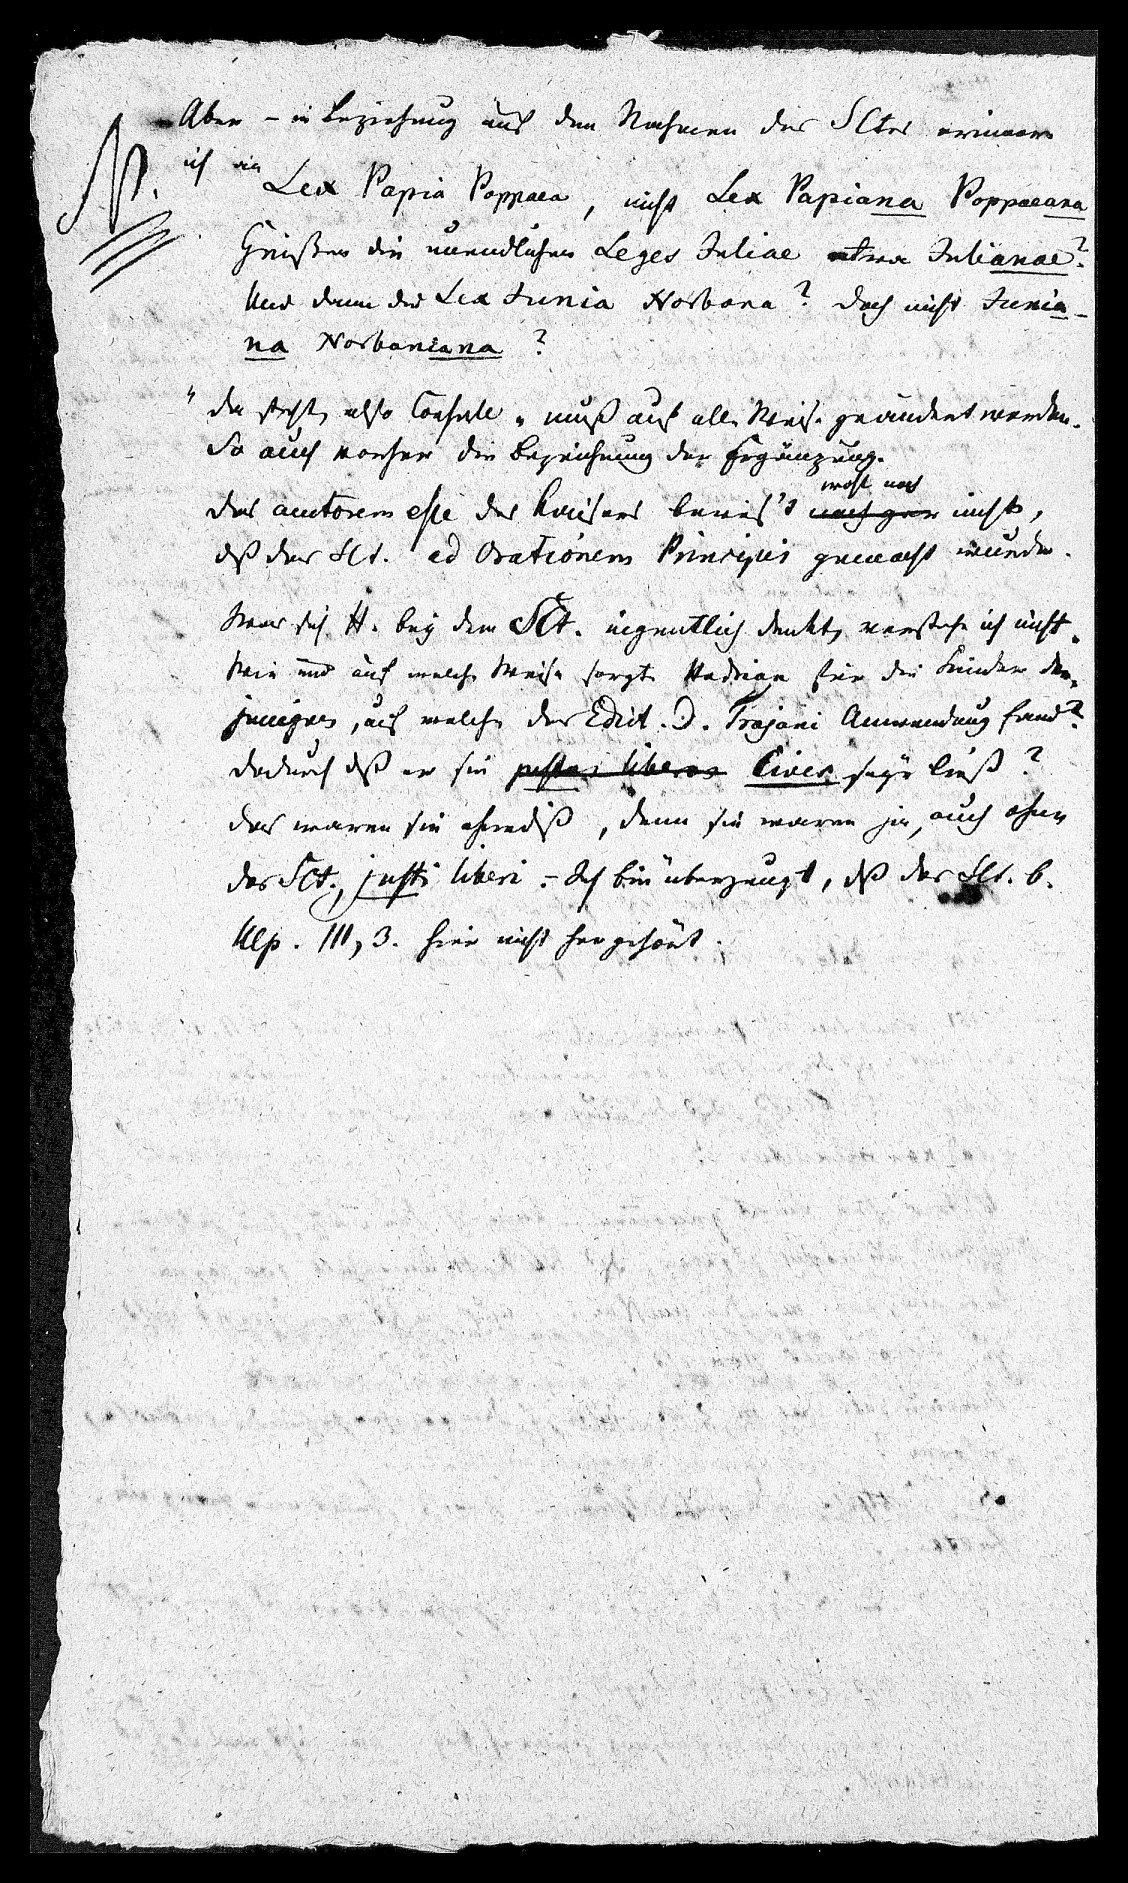 Aber – in Beziehung auf den Nahmen des SCtes erinnere
N.
ich an Lex Papia Poppaea, nicht Lex Papiana Poppaeana
Hießen die unendlichen Leges Juliae etwa Julianae?
Und dann die Lex Junia Norbana? doch nicht Junia-
na Norbaniana?
" da steht also Consule " muß auf alle Weise geändert werden.
So auch vorher die Bezeichnung der Ergänzung.
wohl noch
Das autorem esse des Kaisers beweis't noch gar nicht,
dß das Sct. ad Orationem Principis gemacht wurde.
Was sich H. bey dem SCt. eigentlich denkt, verstehe ich nicht.
Wie und auf welche Weise sorgte Hadrian für die Kinder der-
jenigen, auf welche das Edict. D. Trajani Anwendung fand?
dadurch dß er sie justos liberos Cives seyn ließ?
das waren sie ohnediß, denn sie waren ja, auch ohne
das SCt., justi liberi. – Ich bin überzeugt, dß das Sct. b.
Ulp. III, 3. hier nicht her gehört.